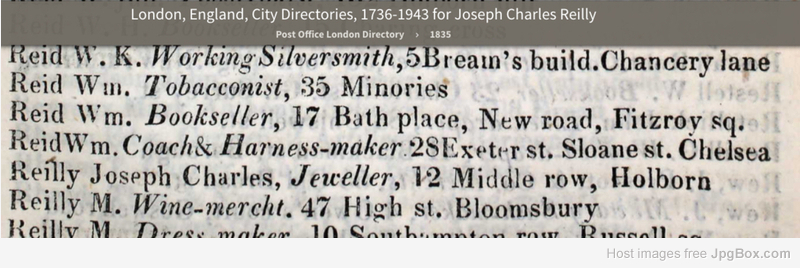 London, England, City Directories, 1736-1943 for Joseph Charles Reilly
Post Office London Directory 1835
Reid W. K. Working Silversmith, 5 Bream's build. Chancery lane
Reid Wm. Tobacconist, 35 Minories
Reid Wm. Bookseller, 17 Bath place, New road, Fitzroy sq.
Reid Wm. Coach & Harness-maker 28 Exeter st. Sloane st. Chelsea
Reilly Joseph Charles, Jeweller, 12 Middle row, Holborn
Reilly M. Wine-mercht. 47 High st. Bloomsbury
Reilly M. Dress maker, 10 Southampton row, Russell sq
Host images free JpgBox.com